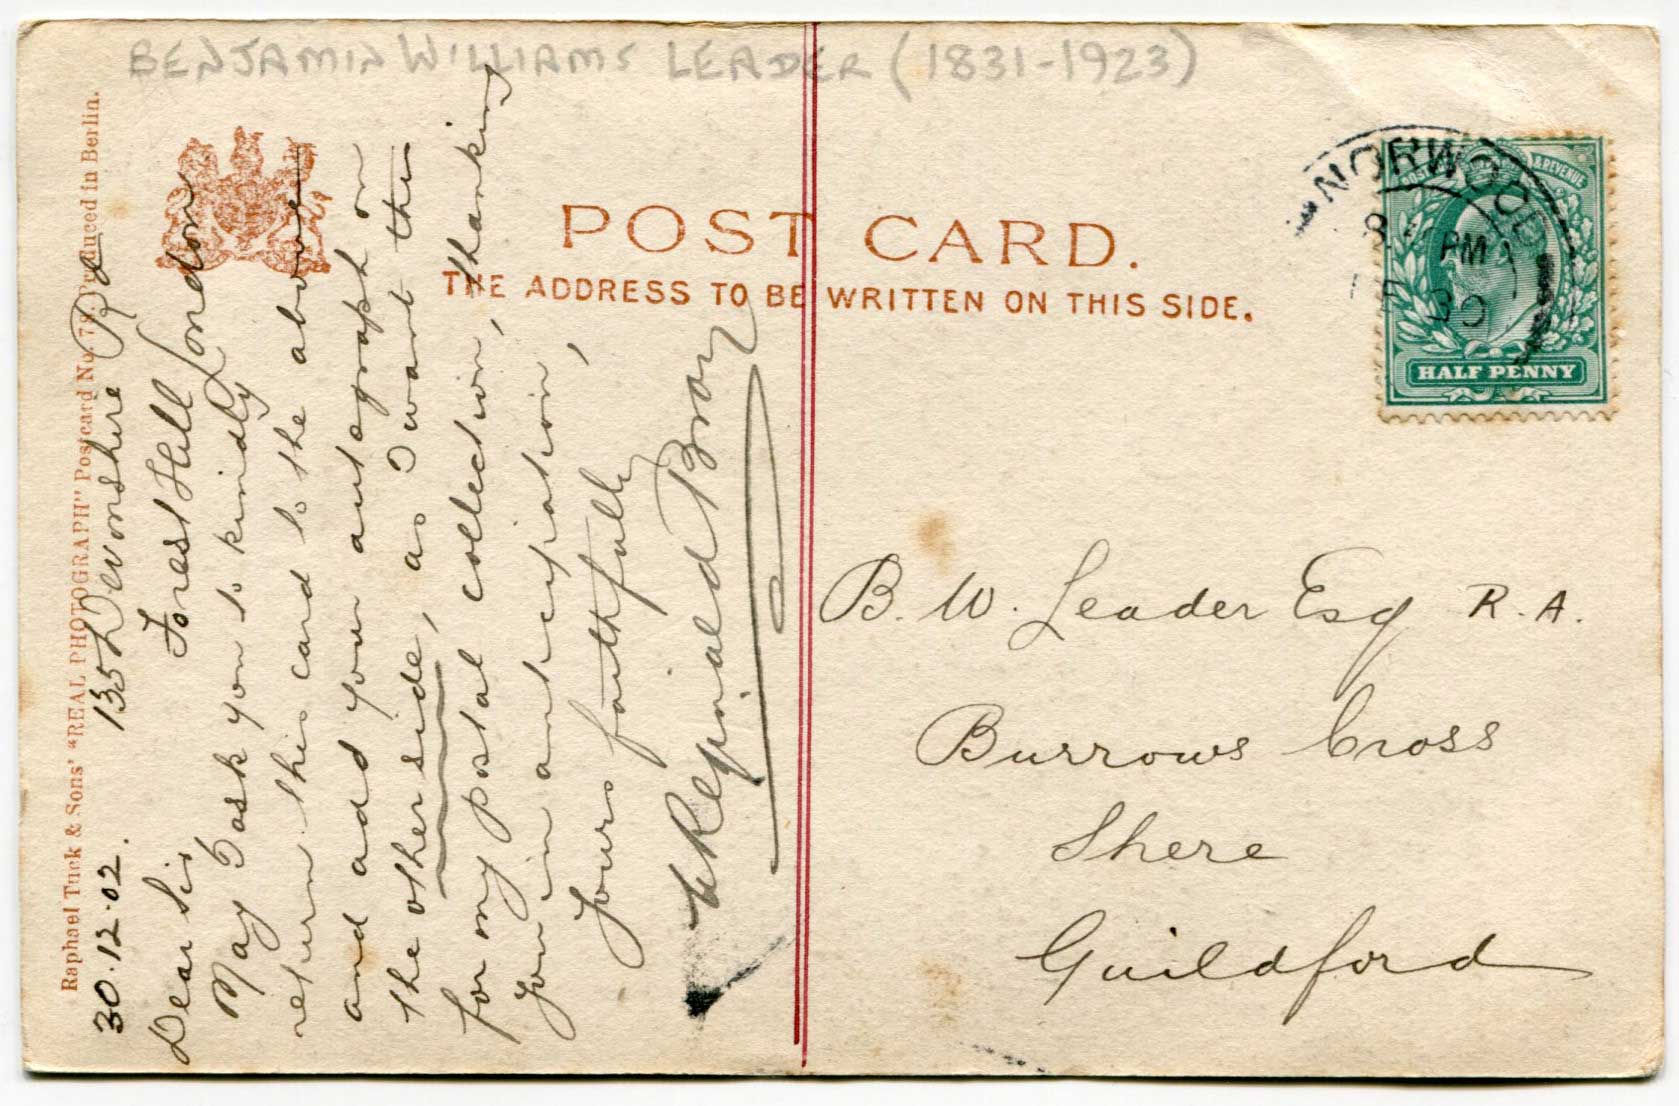 BENJAMIN WILLIAMS LEADER (1831-1923)
Raphael Tuck & Sons' "REAL PHOTOGRAPH" Postcard No. 78. Produced in Berlin.
30.12.02. 135 Devonshire Rd
Forest Hill London
Dear Sir
May I ask you to kindly
return this card to the above
and add your autograph on
the other side, as I want this
for my postal collection, thanking
you in anticipation,
Yours faithfully
Reginald Bray
POST CARD.
THE ADDRESS TO BE WRITTEN ON THIS SIDE.
NORWOOD
8 PM
30
POSTAGE & REVENUE
HALF PENNY
B. W. Leader Esq R.A.
Burrows Cross
Shere
Guildford